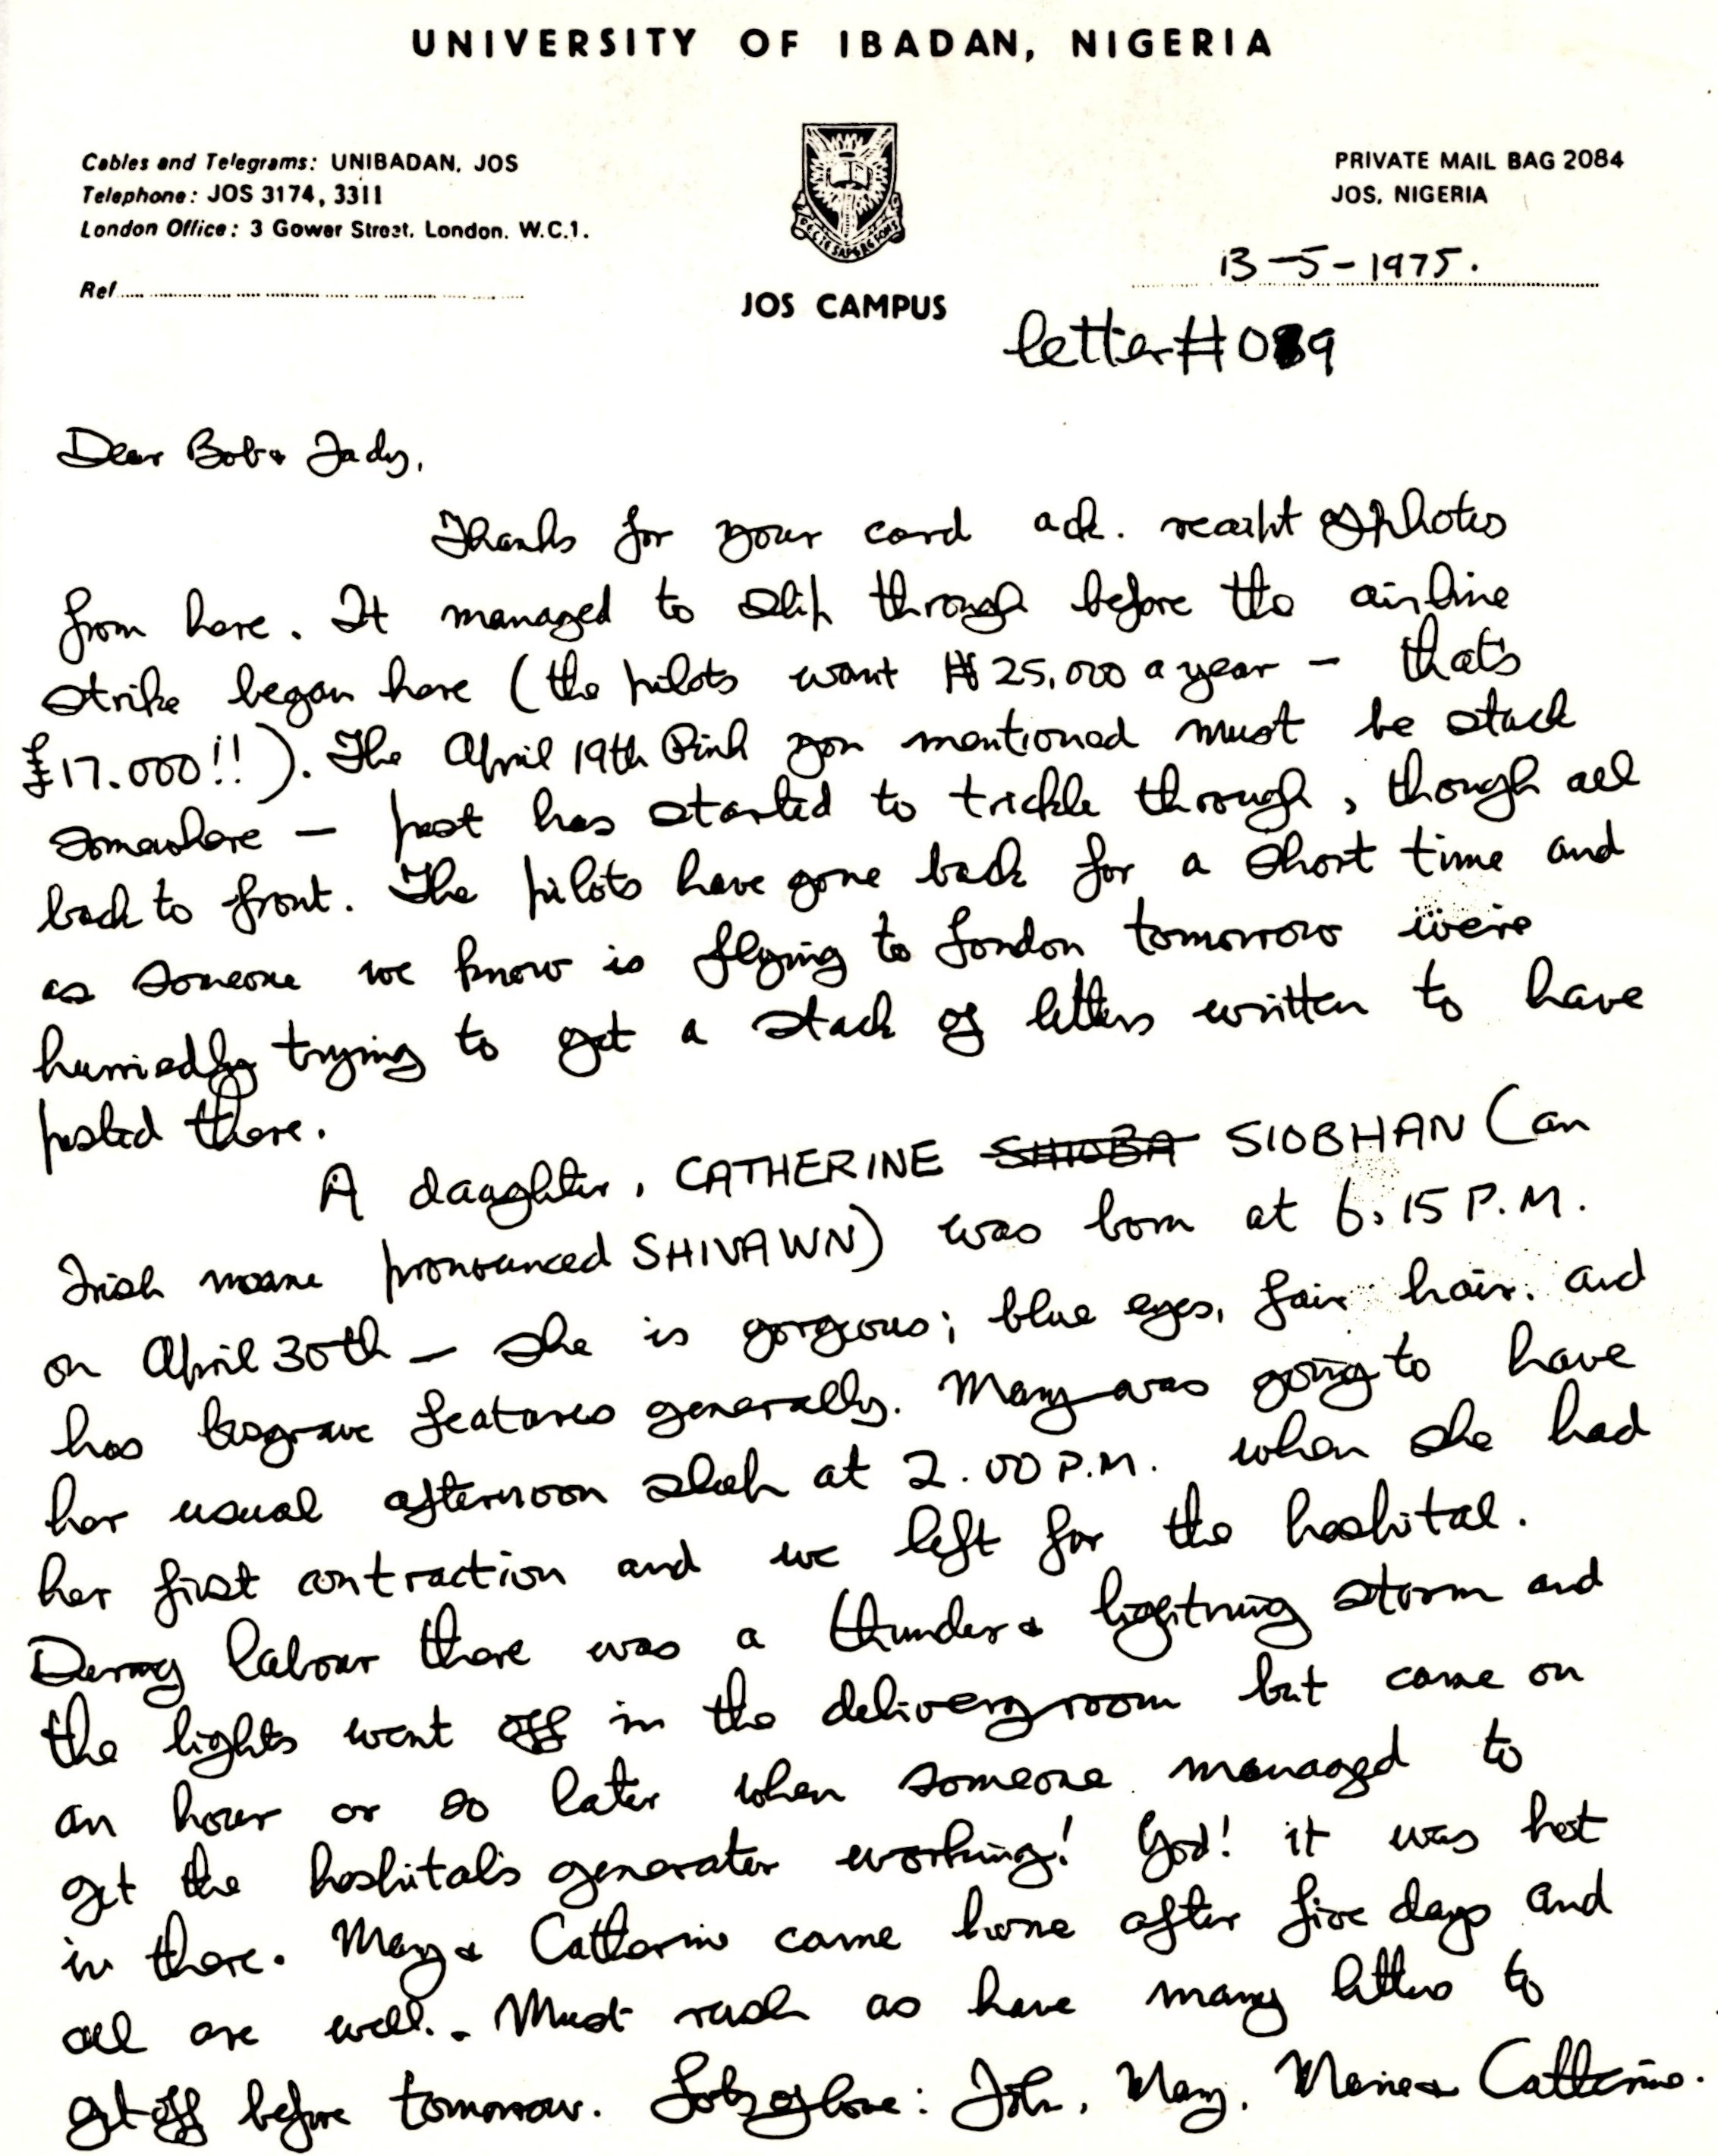 UNIVERSITY OF IBADAN, NIGERIA
Cables and Telegrams: UNIBADAN, JOS
Telephone: JOS 3174, 3311
London Office: 3 Gower Street, London. W.C.1.
Ref
RECTE SAPERE FONS
JOS CAMPUS
PRIVATE MAIL BAG 2084
JOS, NIGERIA
13-5-1975.
letter #089
Dear Bob & Judy,
Thanks for your card ack. receipt of photos
from here. It managed to slip through before the airline
strike began here (the pilots want ₦ 25,000 a year - that's
£17.000!!). The April 19th Pink you mentioned must be stuck
somewhere — post has started to trickle through, though all
back to front. The pilots have gone back for a short time and
as someone we know is flying to London tomorrow we're
hurriedly trying to get a stack of letters written to have
posted there.
A daughter, CATHERINE SIOBHAN (an
Irish name pronounced SHIVAWN) was born at 6.15 P.M.
on April 30th — she is gorgeous; blue eyes, fair hair. and
has features generally. Mary was going to have
her usual afternoon sleep at 2.00 P.M. when she had
her first contraction and we left for the hospital.
During labour there was a thunder & lightning storm and
the lights went off in the delivery room but came on
an hour or so later when someone managed to
get the hospital's generator working! God! it was hot
in there. Mary & Catherine came home after five days and
all are well. Must rush as have many letters to
get off before tomorrow. Lots of love: John, Mary, Marie & Catherine.